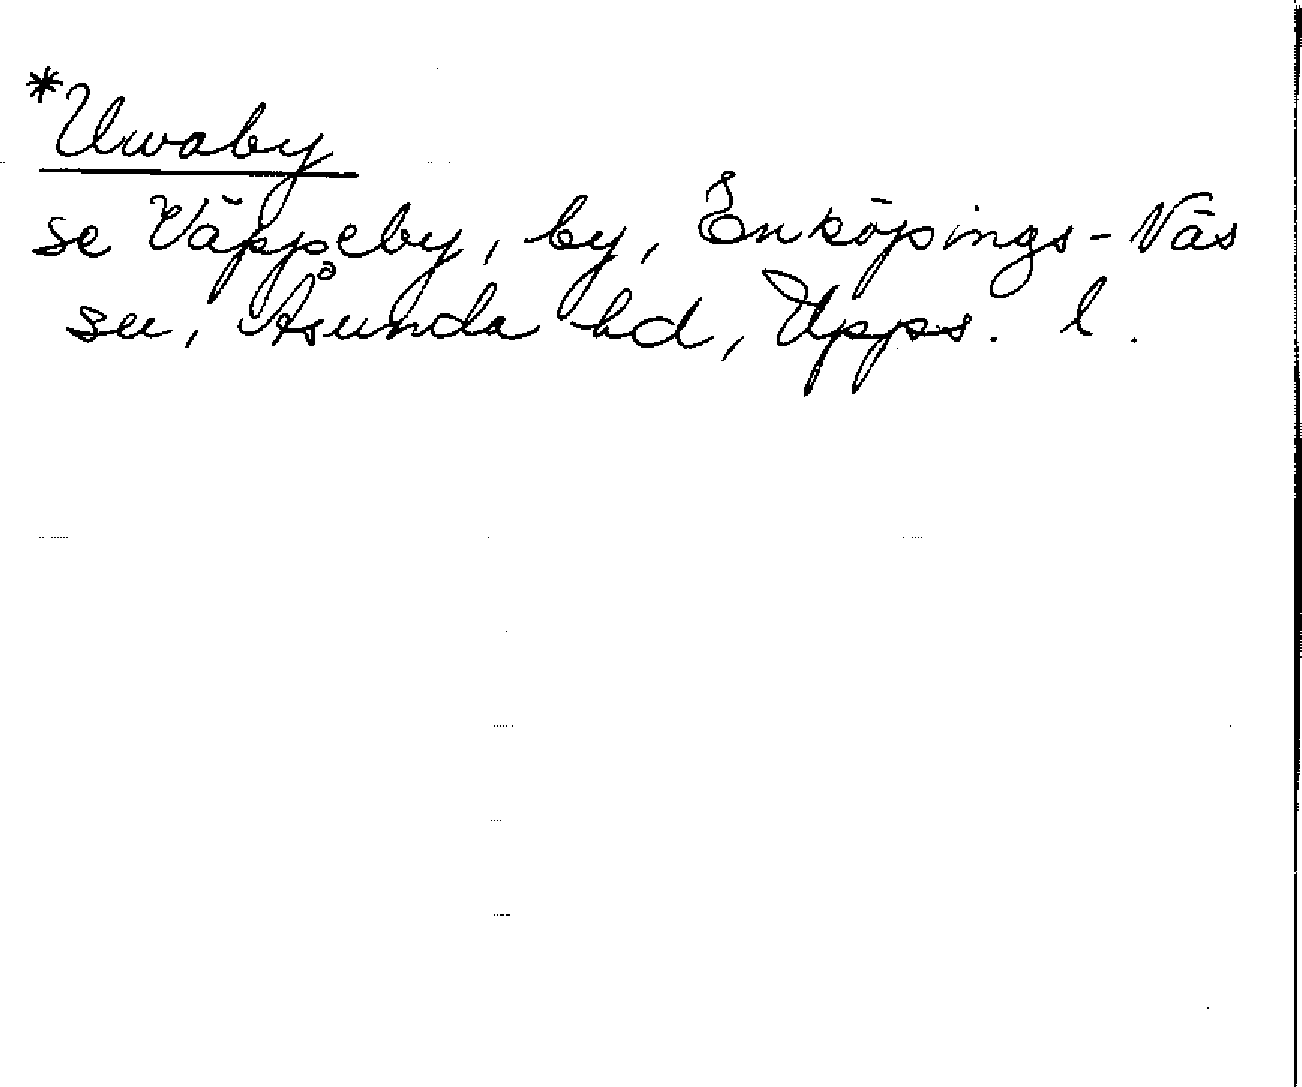 *Uvaby
se Väppeby, by, Enköpings-Näs
sn, Åsunda hd, Upps. l.